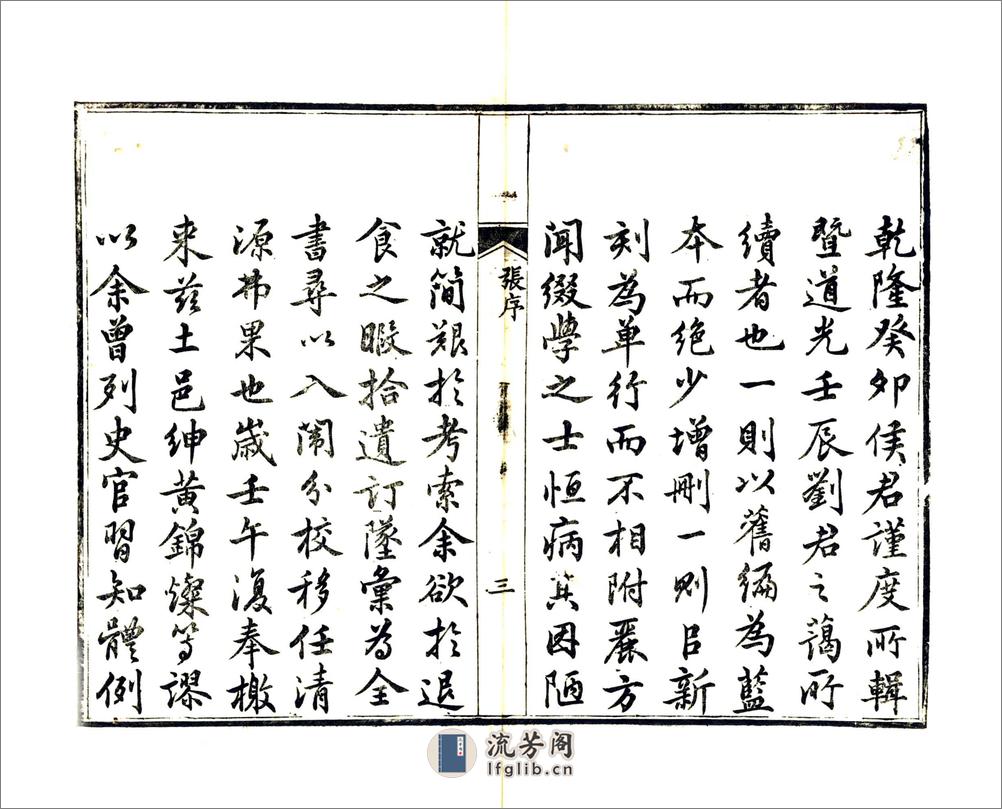 乾隆癸卯侯君謹度所輯
暨道光壬辰劉君之藹所
續者也一則以舊編為藍
本而絶少增刪一則㠯新
刻為單行而不相附麗方
聞綴學之士恒病其因陋
張序
三
就簡艱於考索余欲於退
食之暇拾遺訂墜彙為全
書尋以入闈分校移任清
源弗果也歲壬午復奉檄
来茲土邑紳黃錦燦等謬
以余曾列史官習知體例
流芳阁
lfglib.cn